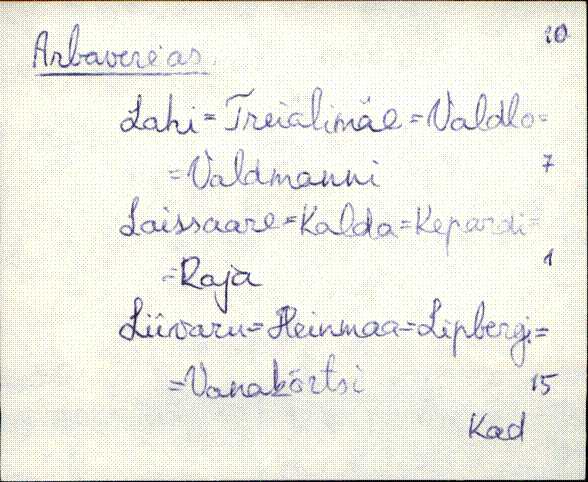 10
Arbavere as.
Lahi = Treialimäe = Valdlo =
= Valdmanni 7
Laissaare = Kalda = Kepardi =
= Raja 1
Liivaru = Heinmaa = Lipbergi =
= Vanakõrtsi 15
Kad